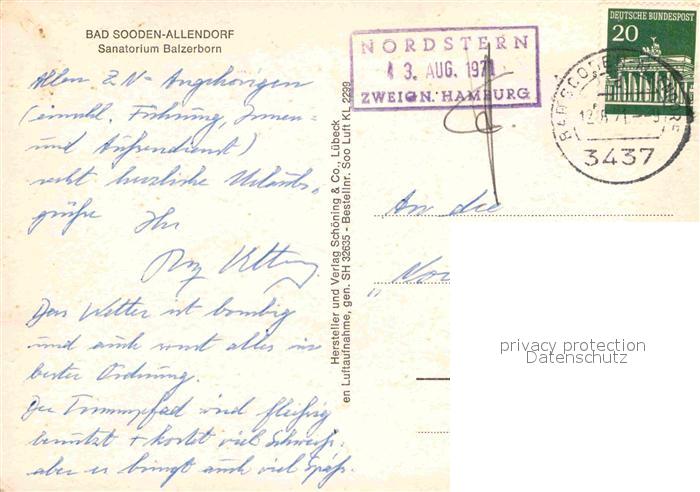 BAD SOODEN-ALLENDORF
Sanatorium Balzerborn
Allen Z.N- Angehörigen
(einschl. Führung, Innen-
und Außendienst)
recht herzliche Urlaubs-
grüße Ihr
Das Wetter ist bombig
und auch sonst alles in
bester Ordnung.
Der Trimmpfad wird fleißig
benutzt + kostet viel Schweiß,
aber es bringt auch viel Spaß.
Hersteller und Verlag Schöning & Co., Lübeck
en Luftaufnahme, gen. SH 32635 - Bestellnr. Soo Luft KL 2299
NORDSTERN
13. AUG. 1971
ZWEIGN. HAMBURG
DEUTSCHE BUNDESPOST
20
BAD SOODEN
3437
An die
privacy protection
Datenschutz